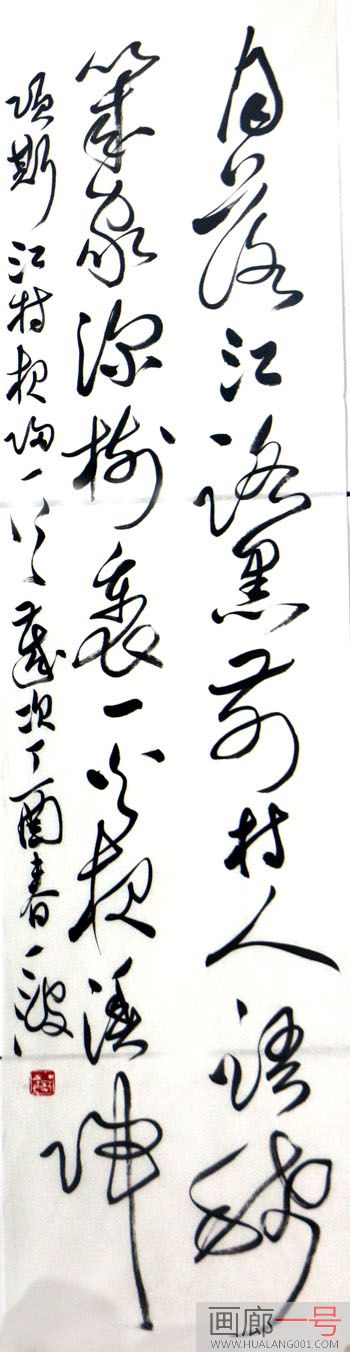 月落江路黑前村人語稀
幾家深樹裏一火夜漁歸
項斯江村夜歸一首歲次丁酉春一波
画廊一号
WWW.HUALANG001.COM